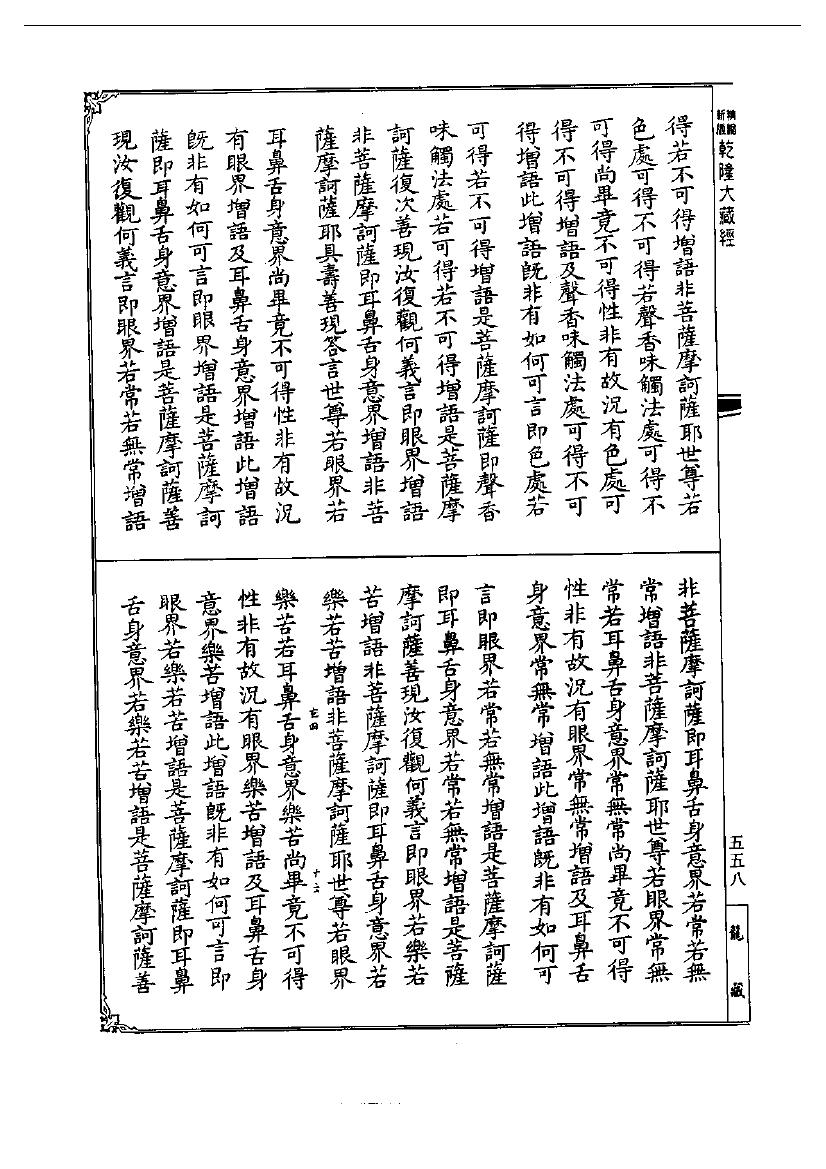 新版
精縮
乾隆大藏經
得若不可得增語非菩薩摩訶薩耶世尊若
色處可得不可得若聲香味觸法處可得不
可得尚畢竟不可得性非有故況有色處可
得不可得增語及聲香味觸法處可得不可
得增語此增語既非有如何可言即色處若
可得若不可得增語是菩薩摩訶薩即聲香
味觸法處若可得若不可得增語是菩薩摩
訶薩復次善現汝復觀何義言即眼界增語
非菩薩摩訶薩即耳鼻舌身意界增語非菩
薩摩訶薩耶具壽善現答言世尊若眼界若
耳鼻舌身意界尚畢竟不可得性非有故況
有眼界增語及耳鼻舌身意界增語此增語
既非有如何可言即眼界增語是菩薩摩訶
薩即耳鼻舌身意界增語是菩薩摩訶薩善
現汝復觀何義言即眼界若常若無常增語
非菩薩摩訶薩即耳鼻舌身意界若常若無
常增語非菩薩摩訶薩耶世尊若眼界常無
常若耳鼻舌身意界常無常尚畢竟不可得
性非有故況有眼界常無常增語及耳鼻舌
身意界常無常增語此增語既非有如何可
言即眼界若常若無常增語是菩薩摩訶薩
即耳鼻舌身意界若常若無常增語是菩薩
摩訶薩善現汝復觀何義言即眼界若樂若
苦增語非菩薩摩訶薩即耳鼻舌身意界若
樂若苦增語非菩薩摩訶薩耶世尊若眼界
樂苦若耳鼻舌身意界樂苦尚畢竟不可得
性非有故況有眼界樂苦增語及耳鼻舌身
意界樂苦增語此增語既非有如何可言即
眼界若樂若苦增語是菩薩摩訶薩即耳鼻
舌身意界若樂若苦增語是菩薩摩訶薩善
五五八
龍藏